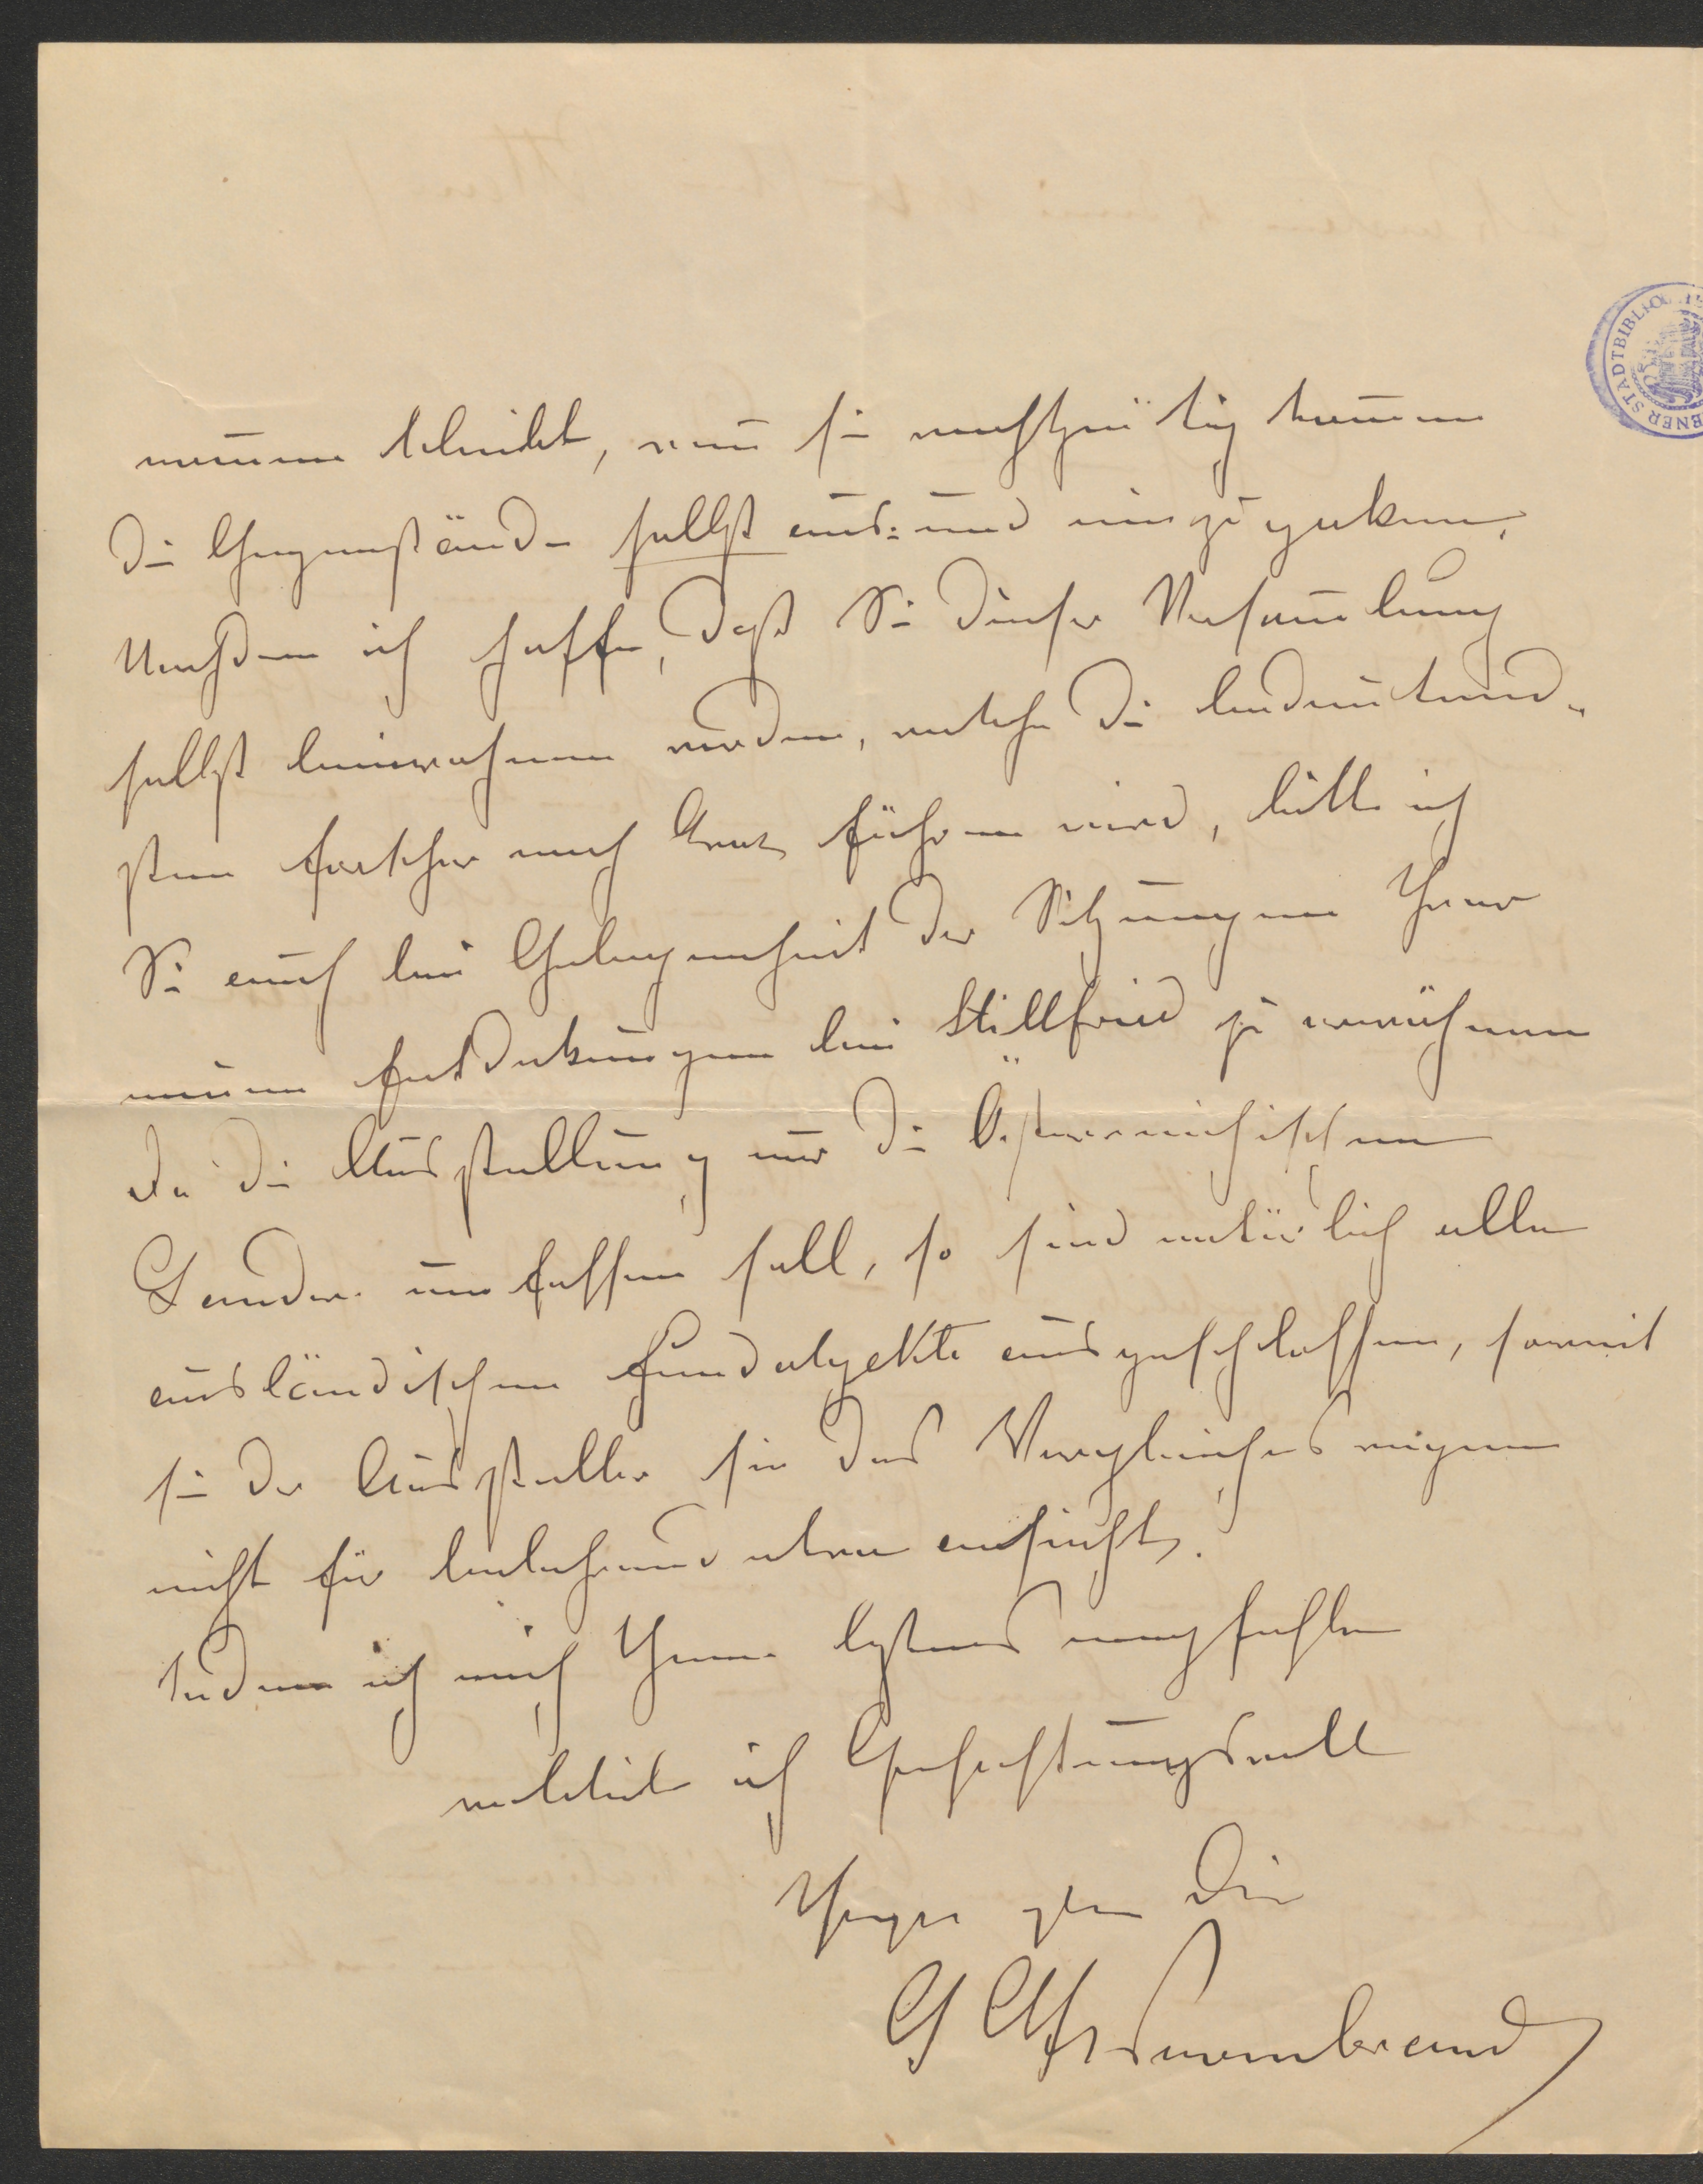 nommen bleibt, wenn sie rechtzeitig kommen
die Gegenstände selbst aus= und einzupacken.
Nachdem ich hoffe, daß Sie dieser Versamlung
selbst beiwohnen werden, welche die bedeutend¬
sten Forscher nach Graz führen wird, bitte ich
Sie auch bei Gelegenheit der Sitzungen Ihrer
neuen Entdekungen bei Stillfried zu erwähnen
Da die Ausstellung nur die Österreichischen
Länder umfassen soll, so sind natürlich alle
ausländischen Fundobjekte ausgeschlossen, soweit
sie der Aussteller sie des Vergleiches wegen
nicht für belehrend etwa ansieht.
Indem ich mich Ihnen bestens empfehle
verbleibe ich Hochachtungsvoll
G Wurmbrand
STADTBIBLIO